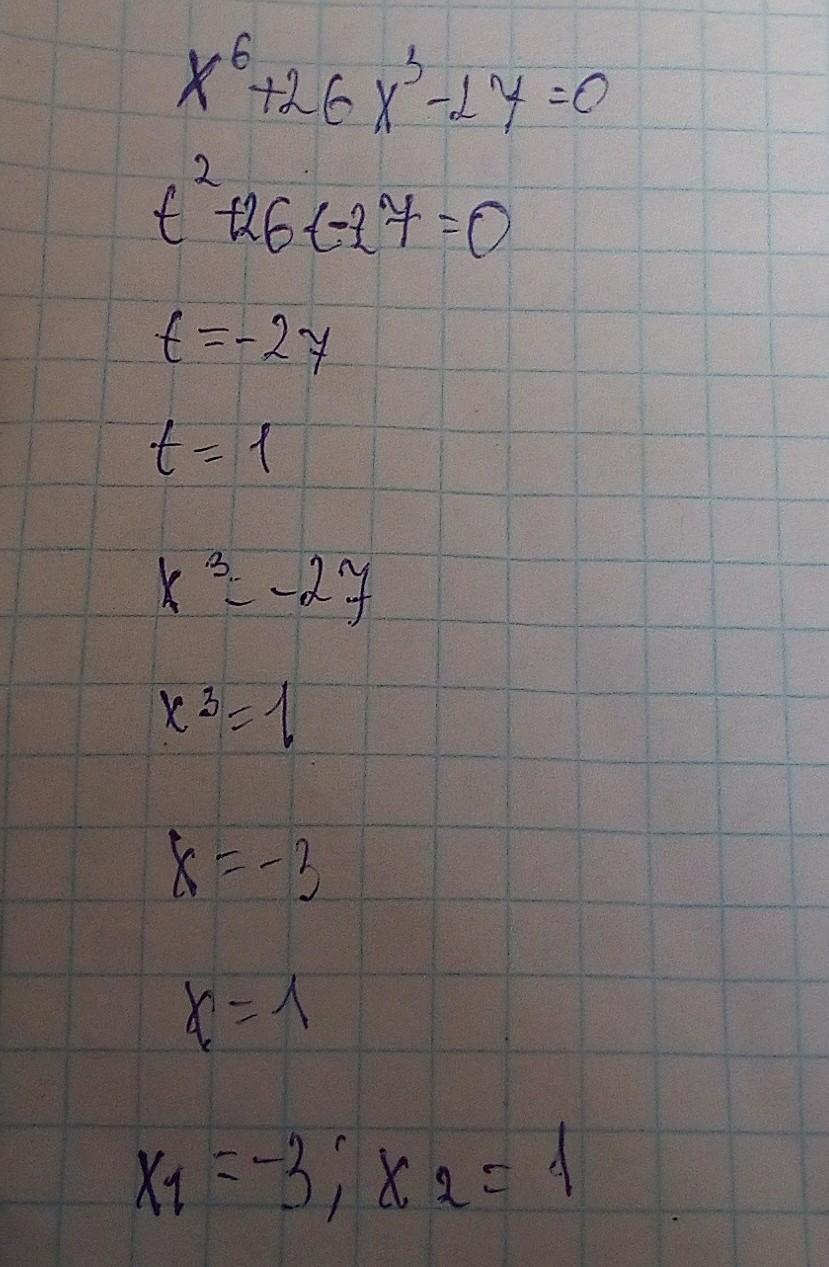 x⁶+26x³-27=0
t²+26t-27=0
t=-27
t=1
x³=-27
x³=1
x=-3
x=1
x₁=-3; x₂=1